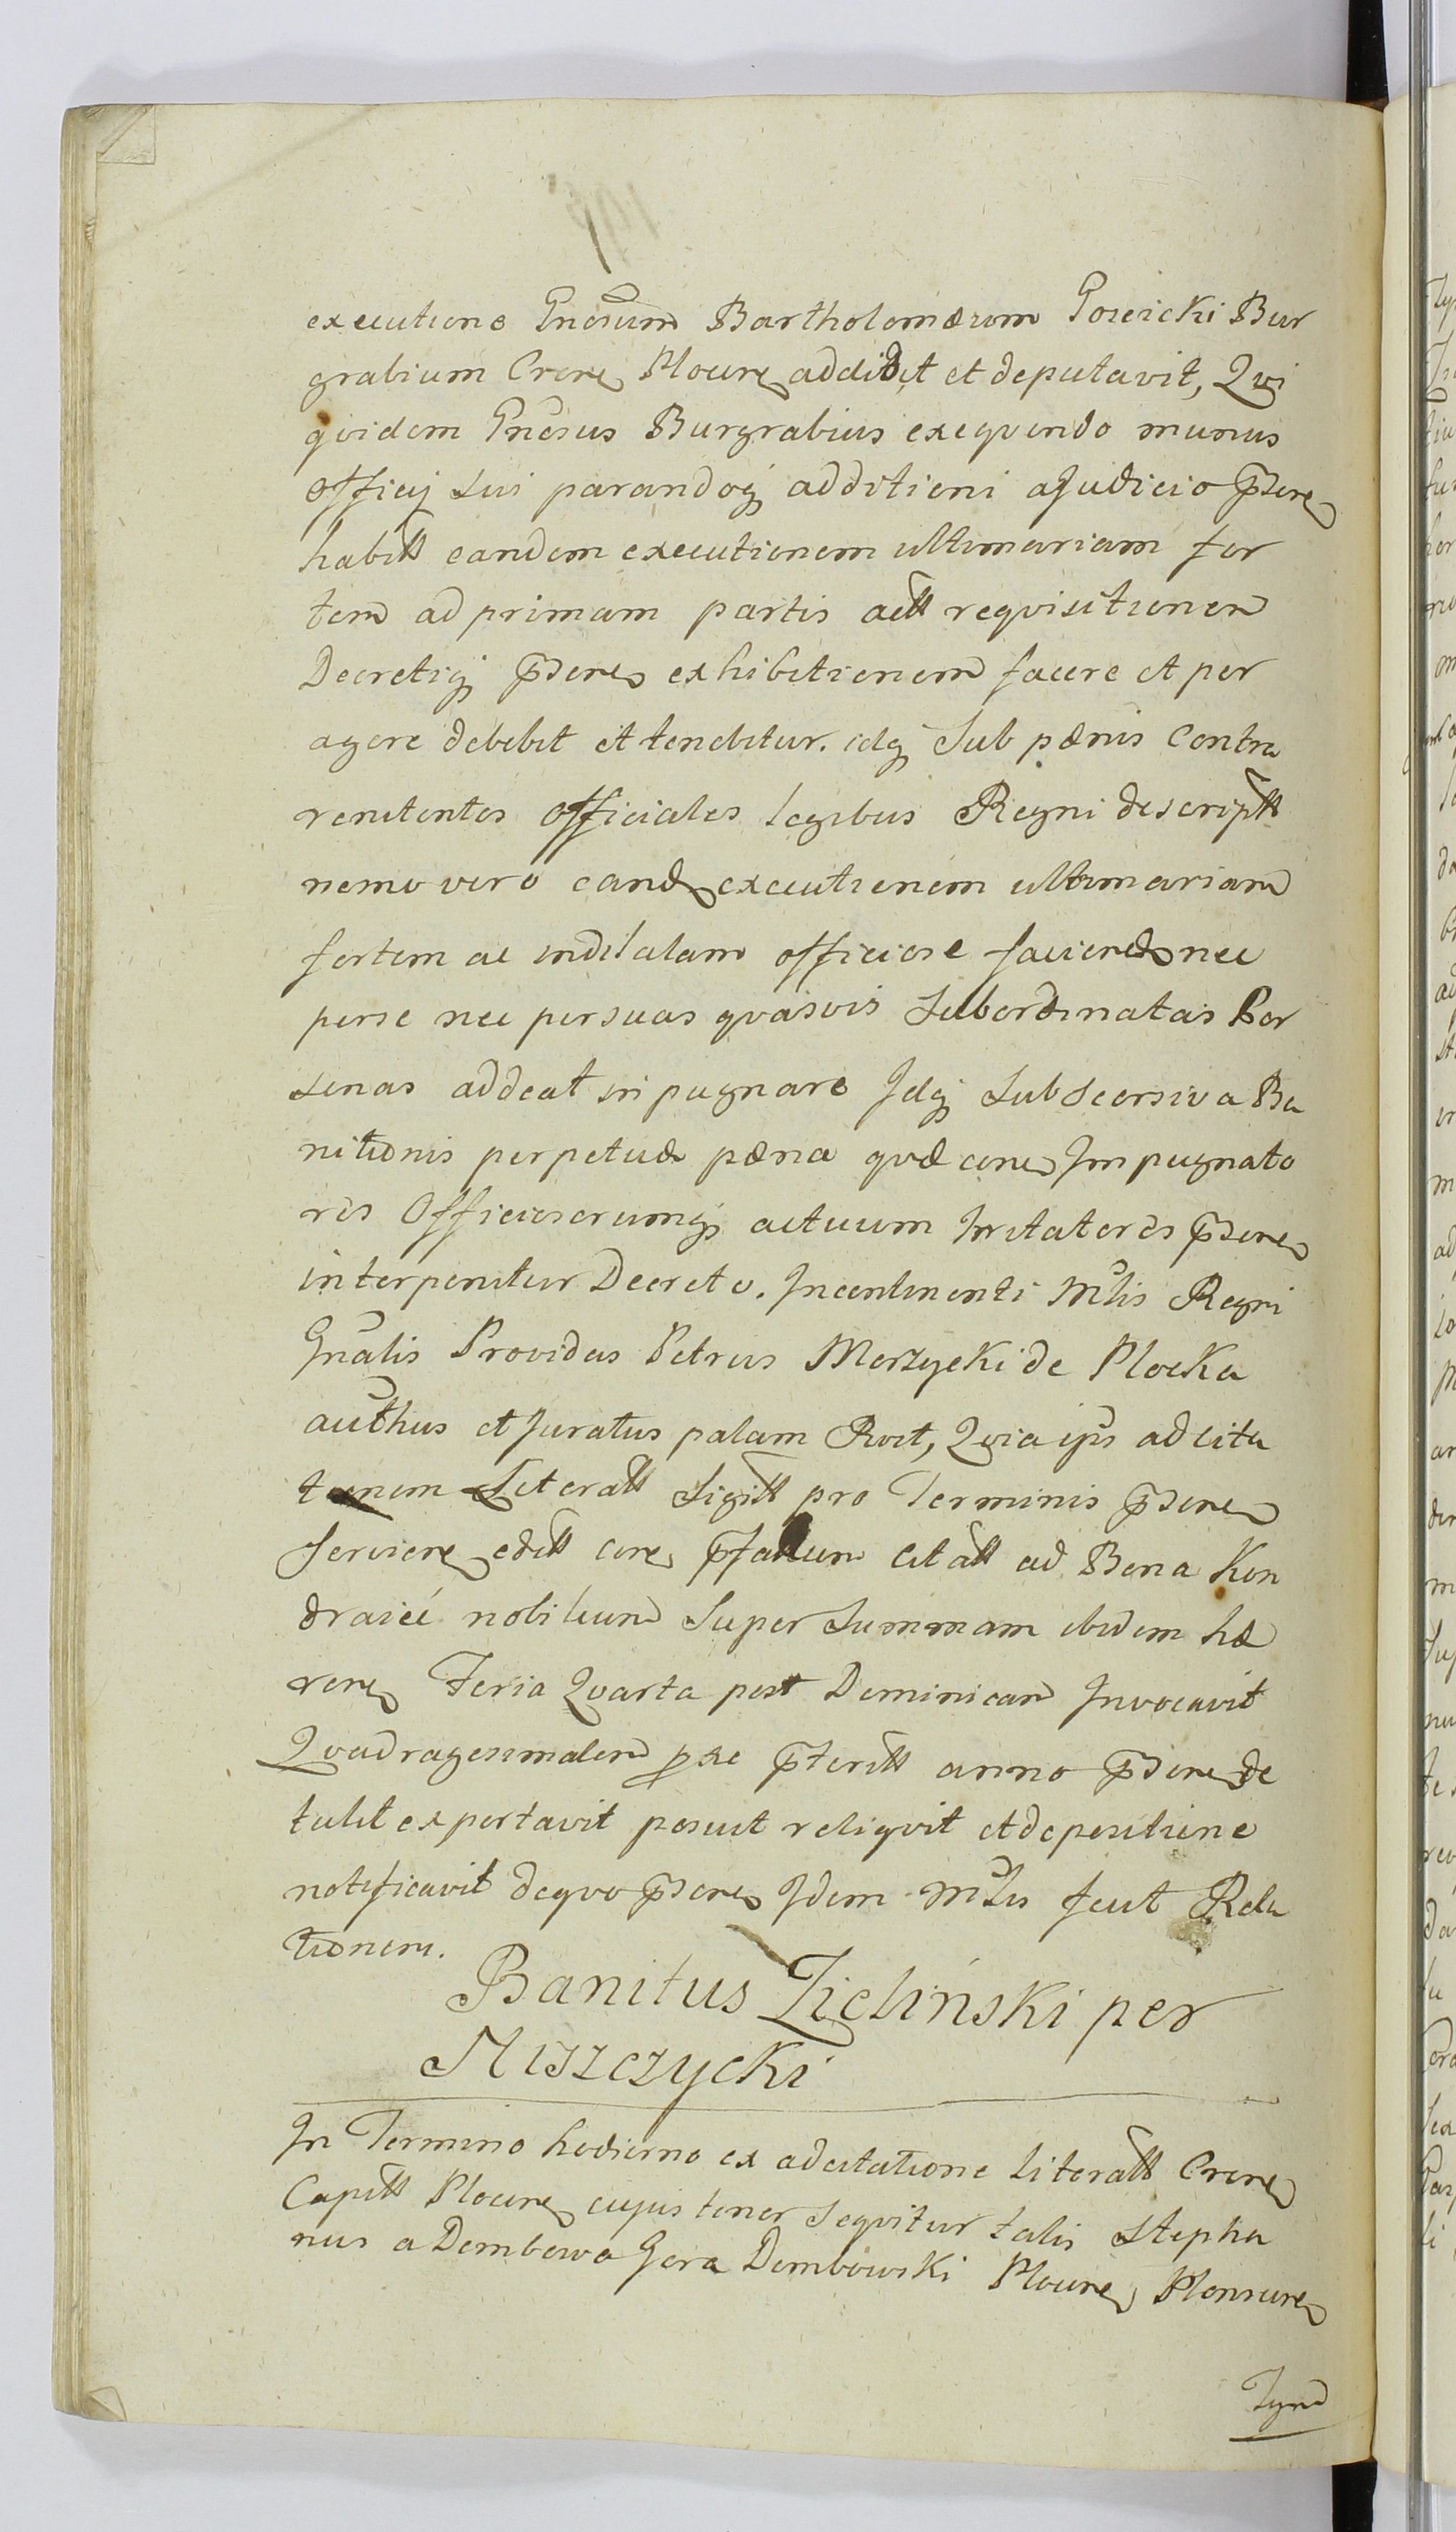 executione Gnosum Bartholomæum Goszicki Bur
grabium Crcre Plocure addidit et deputavit, Qvi
qvidem Gnosus Burgrabius exeqvendo munus
officij sui parandoq additioni a Judicio pscre
habitt eandem executionem ultimariam for
tem ad primam partis actt reqvisitionem
Decretiq pscris exhibitionem facere et per
agere debebit et tenebitur. idq Sub pænis Contra
renitentes officiales legibus Regni descriptt
nemo vero eand executionem ultimariam
fortem ac indilatam officiose faciend nec
per se nec per suas qvasvis Subordinatas Per
sonas addeat inpugnare Jdq Sub Seorsiva Ba
nitionis perpetuæ pæna qvæ cone Jmpugnato
res Officiosorumq actuum Irritatores pscre
interponitur Decreto. Jncontinenti Mlis Regni
Gnalis Providus Petrus Morzycki de Plocka
authus et Juratus palam Rvit, Qvia ips adcita
tionem Literatt Sigitt pro Terminis pscre
Serviere editt cone pfatum Citatt ad Bona Kon
draice nobilium Super Summam ibidem hæ
rere Feria Qvarta post Dominicam Jnvocavit
Qvadragesimalem pxe pteritt anno pscre de
tulit exportavit posuit reliqvit et de positione
notificavit de qvo pscre Jdem Mlis fecit Rela
tionem.
Banitus Zieliński per
Miszczycki
In Termino hodierno ex adcitatione literatt Crcre
Capitt Plocure cujus tenor Seqvitur talis Stepha
nus a Dembowa Gora Dembowski Plocure Plonscure